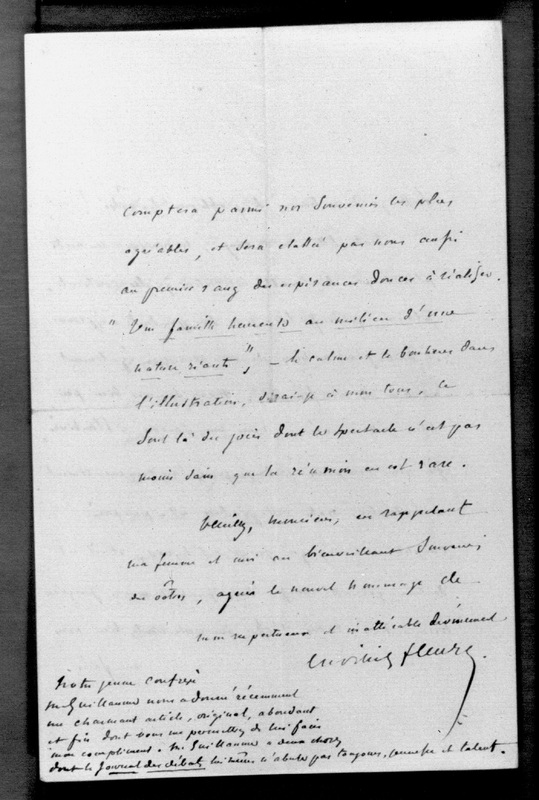 comptera parmi nos souvenirs les plus
agréables, et sera classé par nous aussi
au premier rang des espérances douces à réaliser.
"Une famille heureuse au milieu d'une
nature riante", – le calme et le bonheur dans
l'illustration, dirai-je à mon tour, ce
sont là des joies dont le spectacle n'est pas
moins sain que la réunion en est rare.
Veuillez, monsieur, en rappelant
ma femme et moi au bienveillant souvenir
des vôtres, agréer le nouvel hommage de
mon respectueux et inaltérable dévouement
Cuvillier Fleury.
Notre jeune confrère
M. Guillaume nous a donné récemment
un charmant article, original, abondant
et fin dont vous me permettrez de lui faire
mon compliment. M. Guillaume a deux choses
dont le Journal des débats lui-même n'abuse pas toujours, jeunesse et talent.